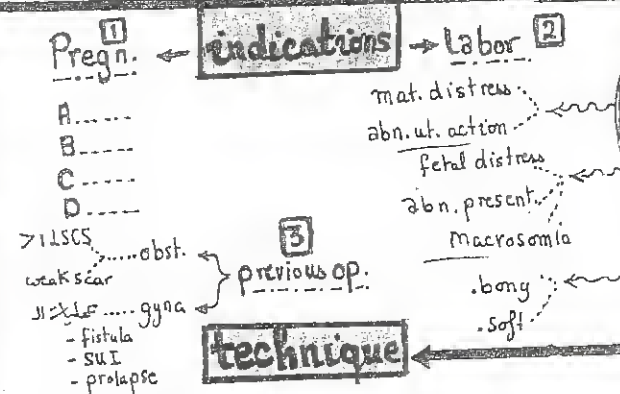 1
Pregn.
indications
labor 2
A......
B.....
C.....
D.....
mat. distress
abn. ut. action
fetal distress
abn. present.
Macrosomia
.bony
.soft
3
previous op.
>1 LSCS
weak scar
.....obst.
..... gyna
- fistula
- SUI
- prolapse
technique